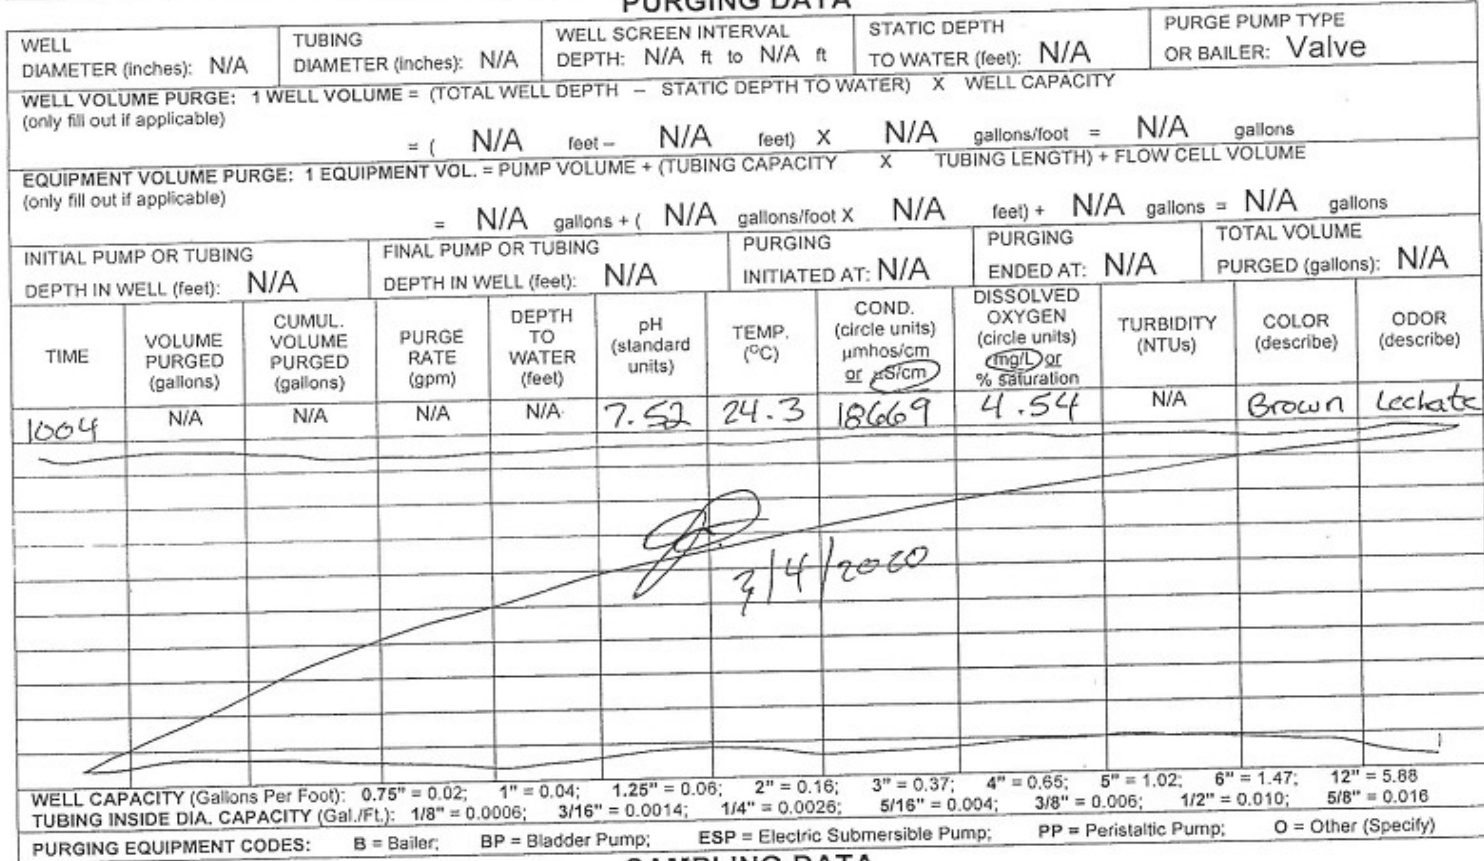 PURGING DATA
WELL DIAMETER (inches): N/A
TUBING DIAMETER (inches): N/A
WELL SCREEN INTERVAL DEPTH: N/A ft to N/A ft
STATIC DEPTH TO WATER (feet): N/A
PURGE PUMP TYPE OR BAILER: Valve
WELL VOLUME PURGE: 1 WELL VOLUME = (TOTAL WELL DEPTH – STATIC DEPTH TO WATER) X WELL CAPACITY
(only fill out if applicable)
= ( N/A feet – N/A feet) X N/A gallons/foot = N/A gallons
EQUIPMENT VOLUME PURGE: 1 EQUIPMENT VOL. = PUMP VOLUME + (TUBING CAPACITY X TUBING LENGTH) + FLOW CELL VOLUME
(only fill out if applicable)
= N/A gallons + ( N/A gallons/foot X N/A feet) + N/A gallons = N/A gallons
INITIAL PUMP OR TUBING DEPTH IN WELL (feet): N/A
FINAL PUMP OR TUBING DEPTH IN WELL (feet): N/A
PURGING INITIATED AT: N/A
PURGING ENDED AT: N/A
TOTAL VOLUME PURGED (gallons): N/A
TIME
VOLUME PURGED (gallons)
CUMUL. VOLUME PURGED (gallons)
PURGE RATE (gpm)
DEPTH TO WATER (feet)
pH (standard units)
TEMP. (ºC)
COND. (circle units) µmhos/cm or µS/cm
DISSOLVED OXYGEN (circle units) mg/L or % saturation
TURBIDITY (NTUs)
COLOR (describe)
ODOR (describe)
1004 N/A N/A N/A N/A 7.52 24.3 18669 4.54 N/A Brown Lechate
3/4/2020
WELL CAPACITY (Gallons Per Foot): 0.75" = 0.02; 1" = 0.04; 1.25" = 0.06; 2" = 0.16; 3" = 0.37; 4" = 0.65; 5" = 1.02; 6" = 1.47; 12" = 5.88
TUBING INSIDE DIA. CAPACITY (Gal./Ft.): 1/8" = 0.0006; 3/16" = 0.0014; 1/4" = 0.0026; 5/16" = 0.004; 3/8" = 0.006; 1/2" = 0.010; 5/8" = 0.016
PURGING EQUIPMENT CODES: B = Bailer; BP = Bladder Pump; ESP = Electric Submersible Pump; PP = Peristaltic Pump; O = Other (Specify)
SAMPLING DATA